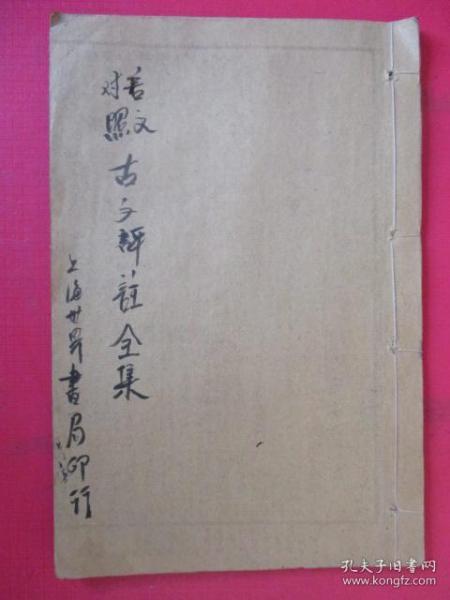 言文
对照
古文評註全集
上海世界書局印行
孔夫子旧书网
www.kongfz.com